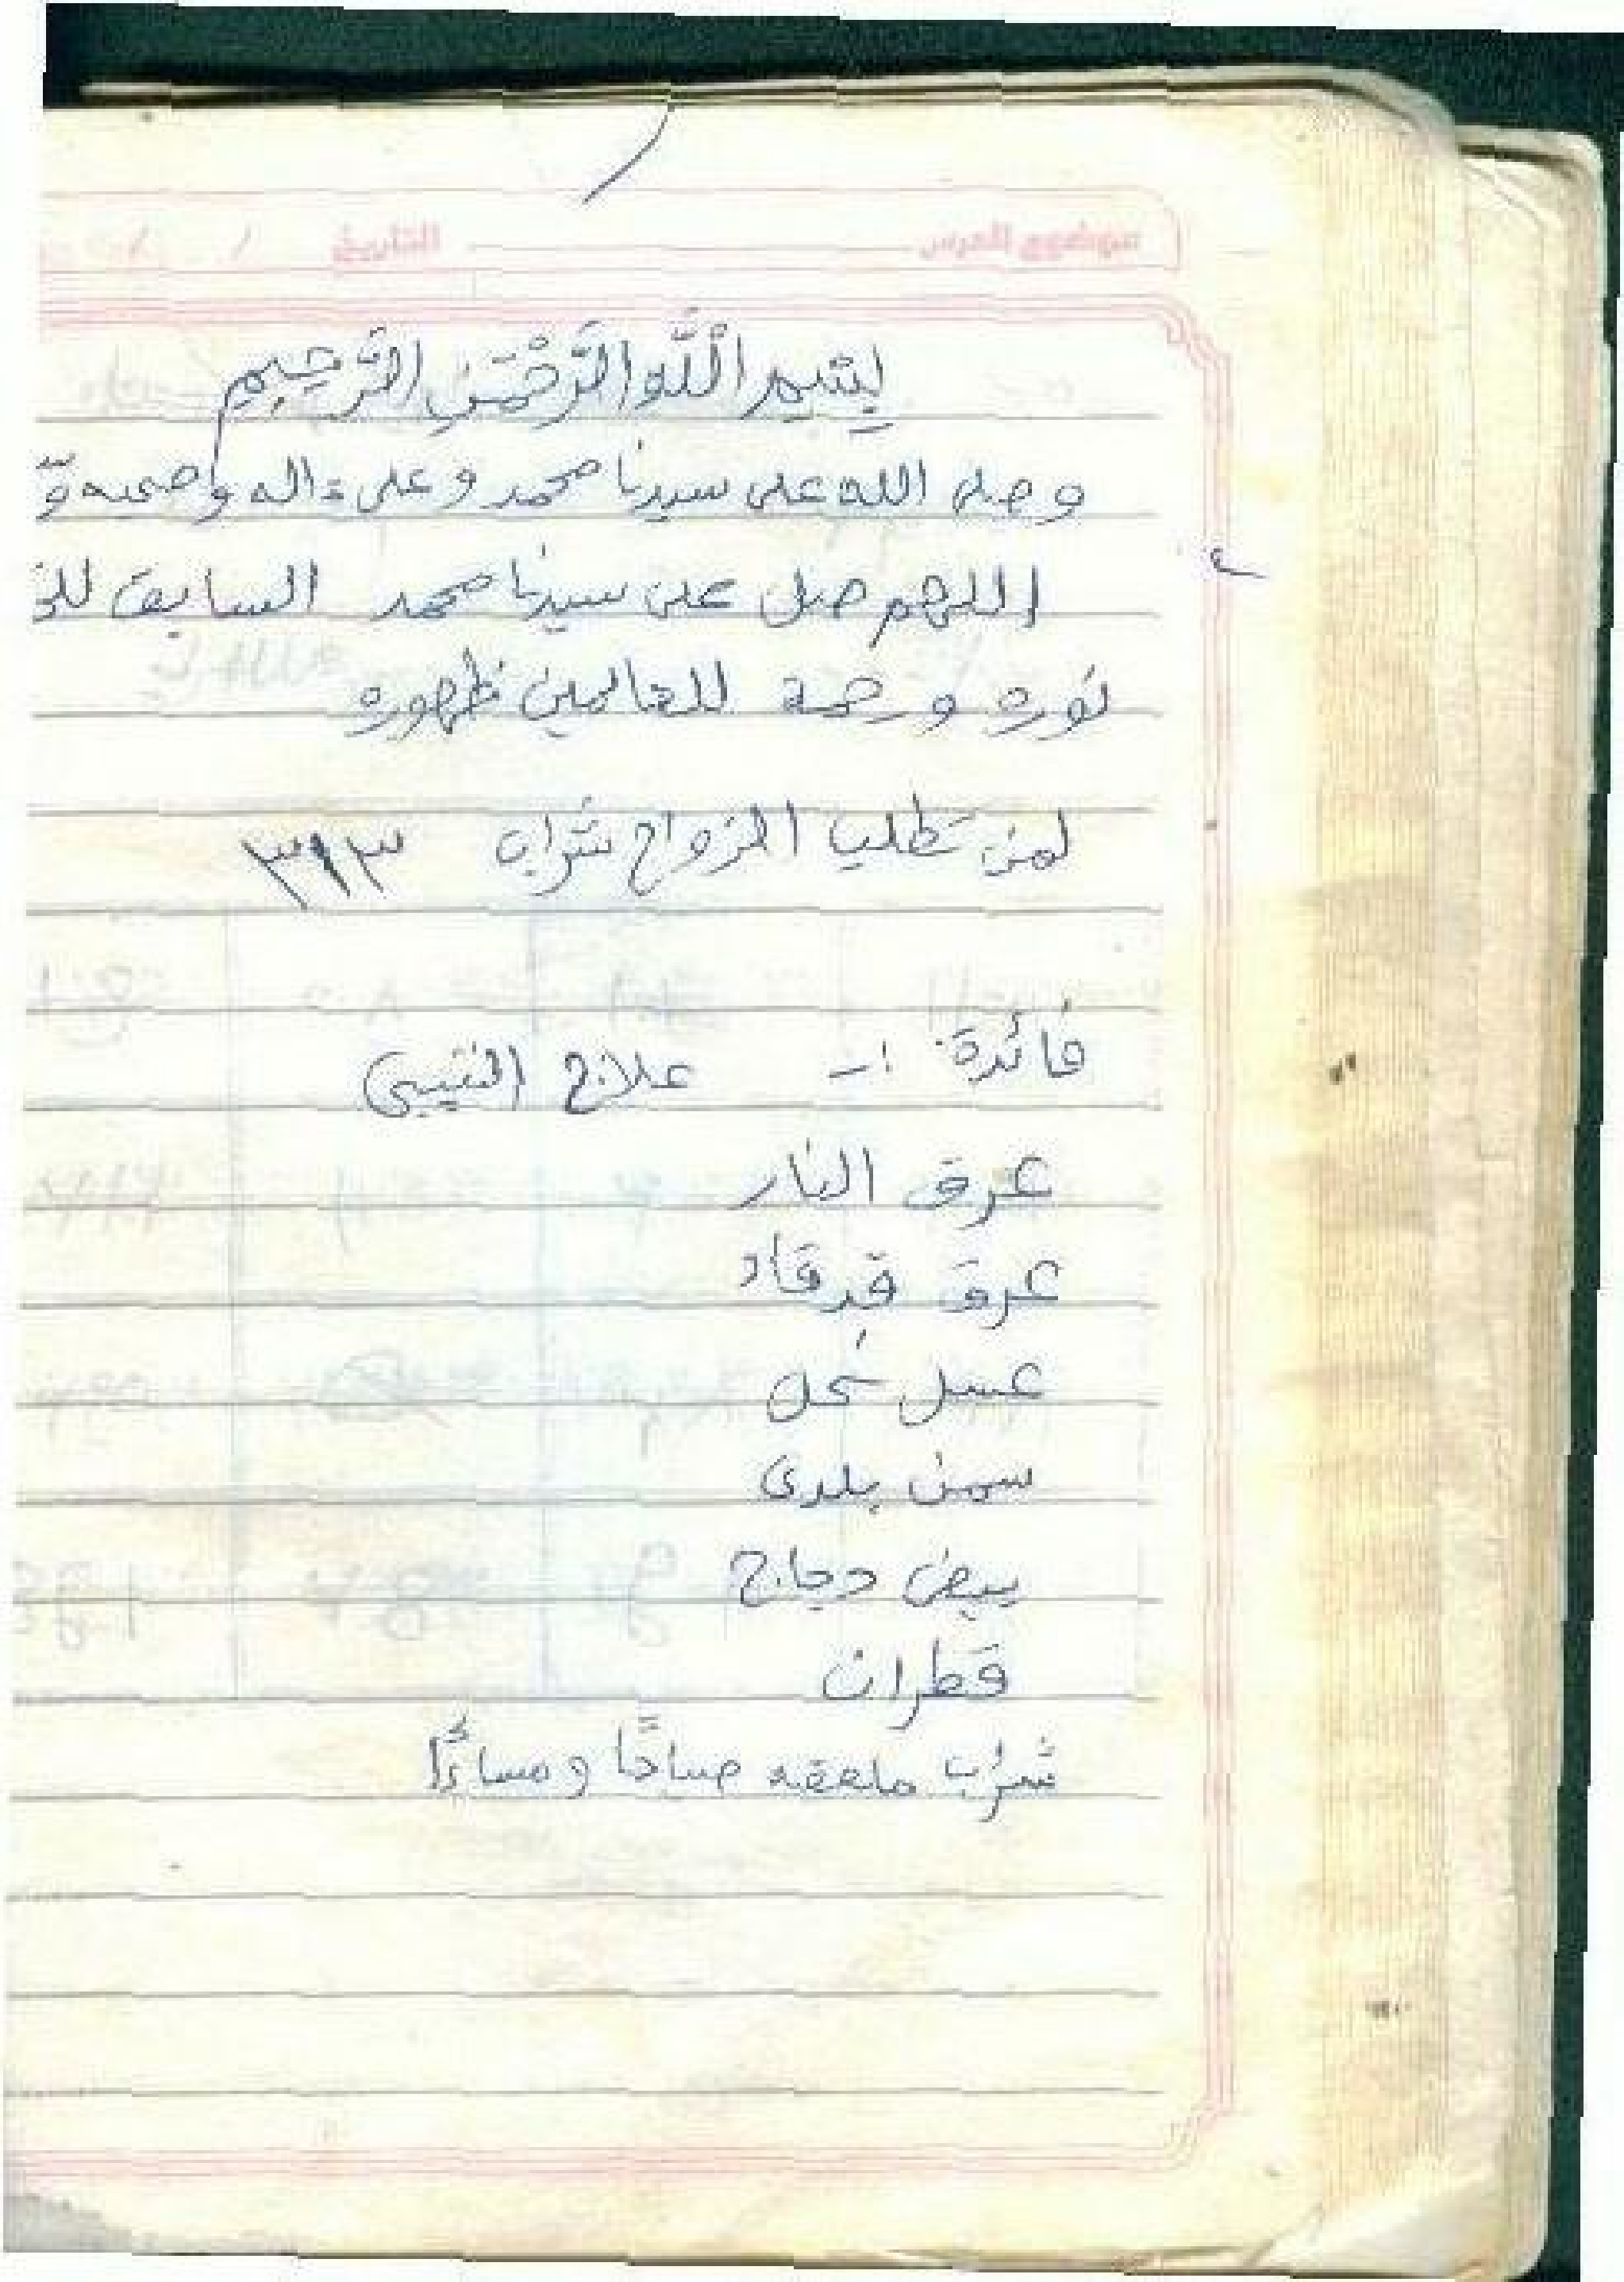 موضوع الدرس التاريخ / /
بِسْمِ اللَّهِ الرَّحْمَنِ الرَّحِيمِ
وصل الله على سيدنا محمد وعلى ءاله واصحبه و
اللهم صل على سيدنا محمد السابق للخ
نوره ورحمة للعالمين ظهوره
لمن تطلب الزواج شراب ٣١٣
فائدة :- علاج
عرق النار
عرق
عسل نحل
سمن بلدى
بيض دجاج
قطران
شراب ملعقه صباحًا ومساءًا